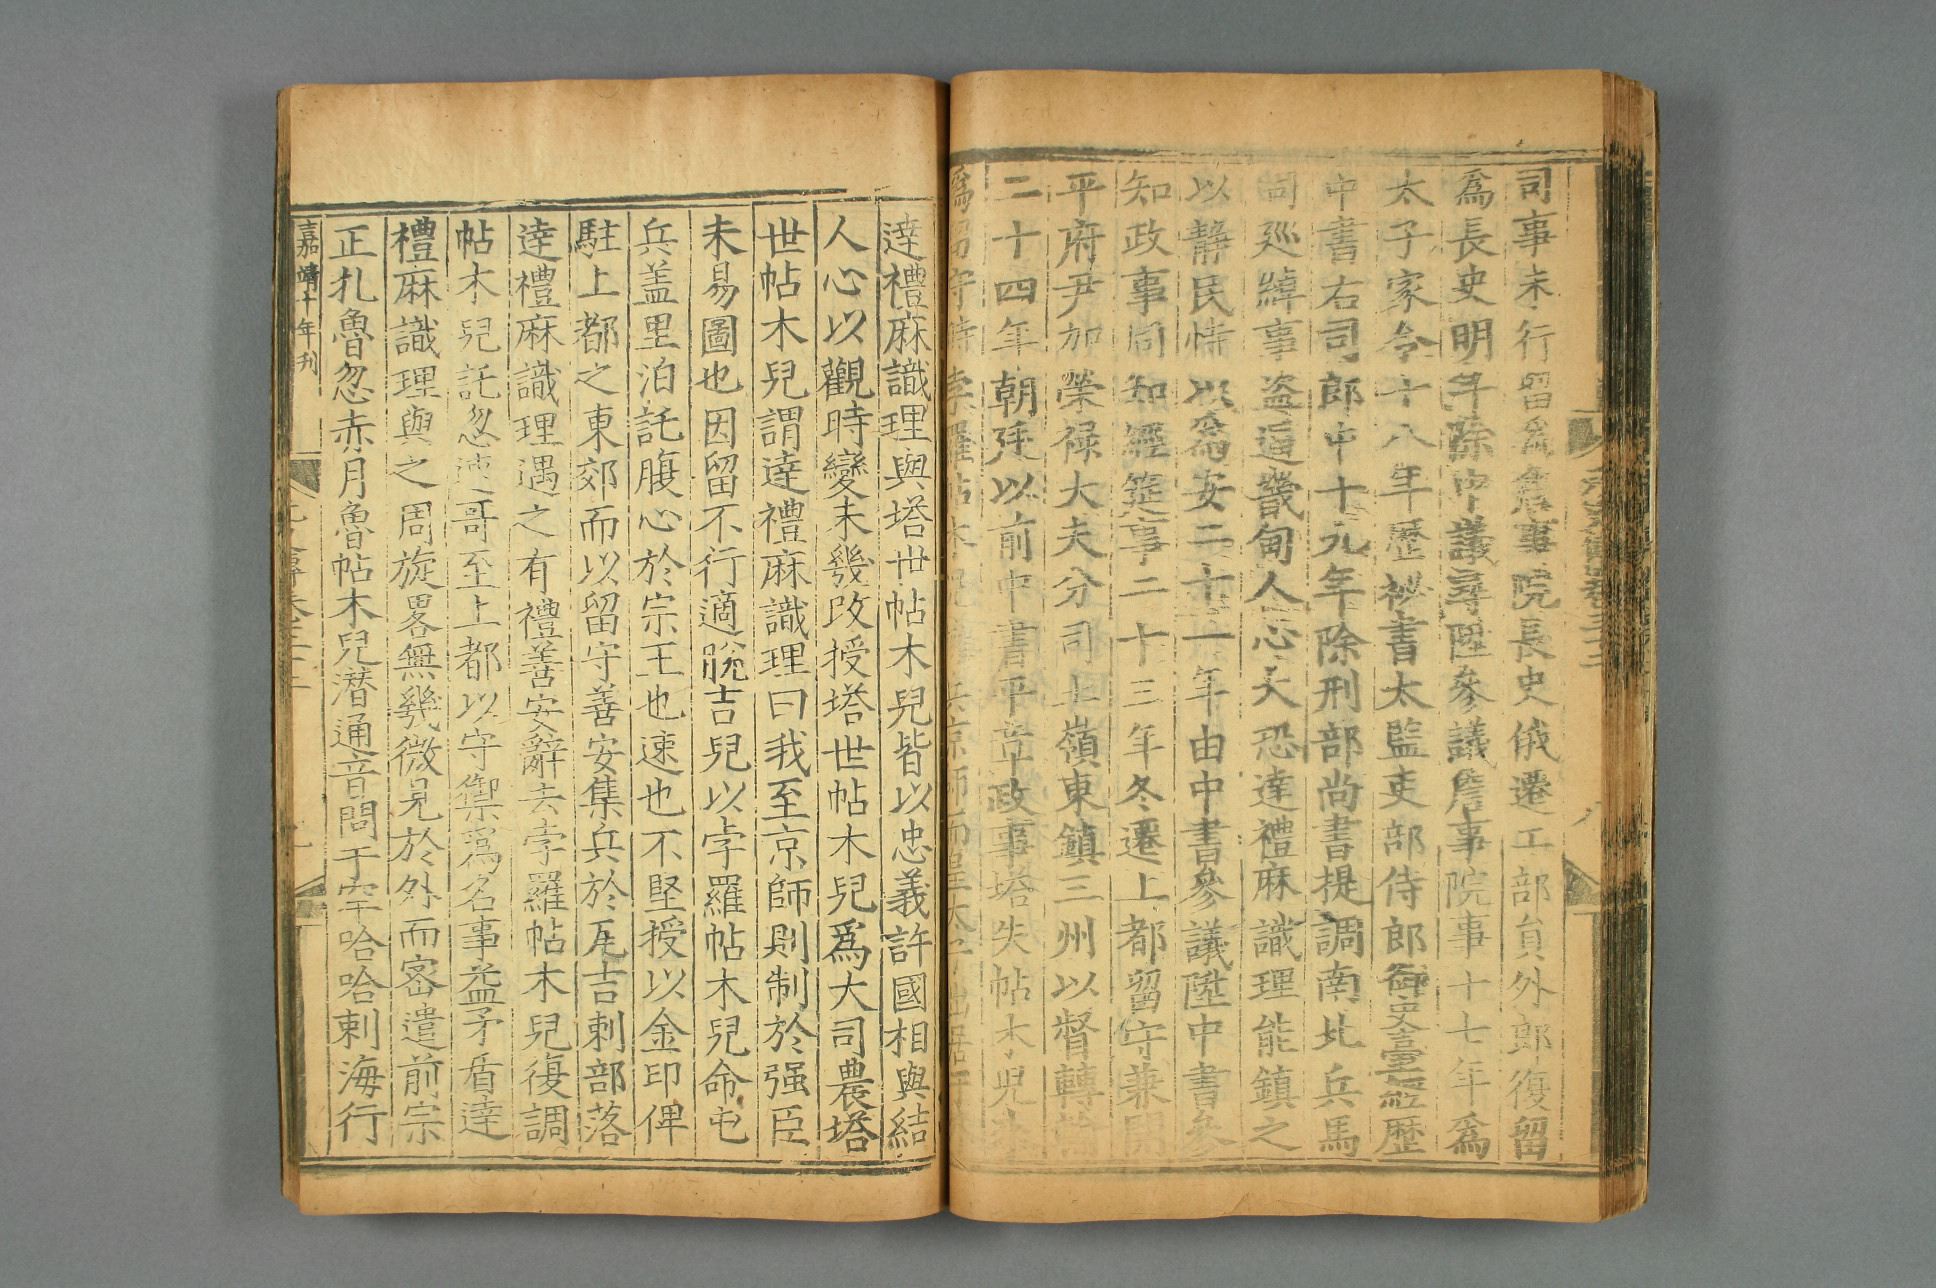 司事未行留爲詹事院長史俄遷工部員外郎復留
爲長史明年除中議尋陞參議詹事院事十七年爲
太子家令十八年歷祕書太監吏部侍郎御史臺經歷
中書右司郎中十九年除刑部尚書提調南北兵馬
司巡綽事盗逼畿甸人心大恐達禮麻識理能鎮之
以靜民恃以爲安二十一年由中書參議陞中書參
知政事同知經筵事二十三年冬遷上都留守兼開
平府尹加榮禄大夫分司土嶺東鎮三州以督轉
二十四年朝廷以前中書平章政事塔失帖木兒
爲留守時孛羅帖木兒 兵京師而皇太子出居
達禮麻識理與塔世帖木兒皆以忠義許國相與結
人心以觀時變未幾改授塔世帖木兒爲大司農塔
世帖木兒謂達禮麻識理曰我至京師則制於强臣
未易圖也因留不行適脫吉兒以孛羅帖木兒命屯
兵盖里泊託腹心於宗王也速也不堅授以金印俾
駐上都之東郊而以留守善安集兵於瓦吉剌部落
達禮麻識理遇之有禮善安辭去孛羅帖木兒復調
帖木兒託忽速哥至上都以守禦爲名事益矛盾達
禮麻識理與之周旋畧無幾微見於外而密遣前宗
正扎魯忽赤月魯帖木兒潛通音問于罕哈哈剌海行
嘉靖十年刊